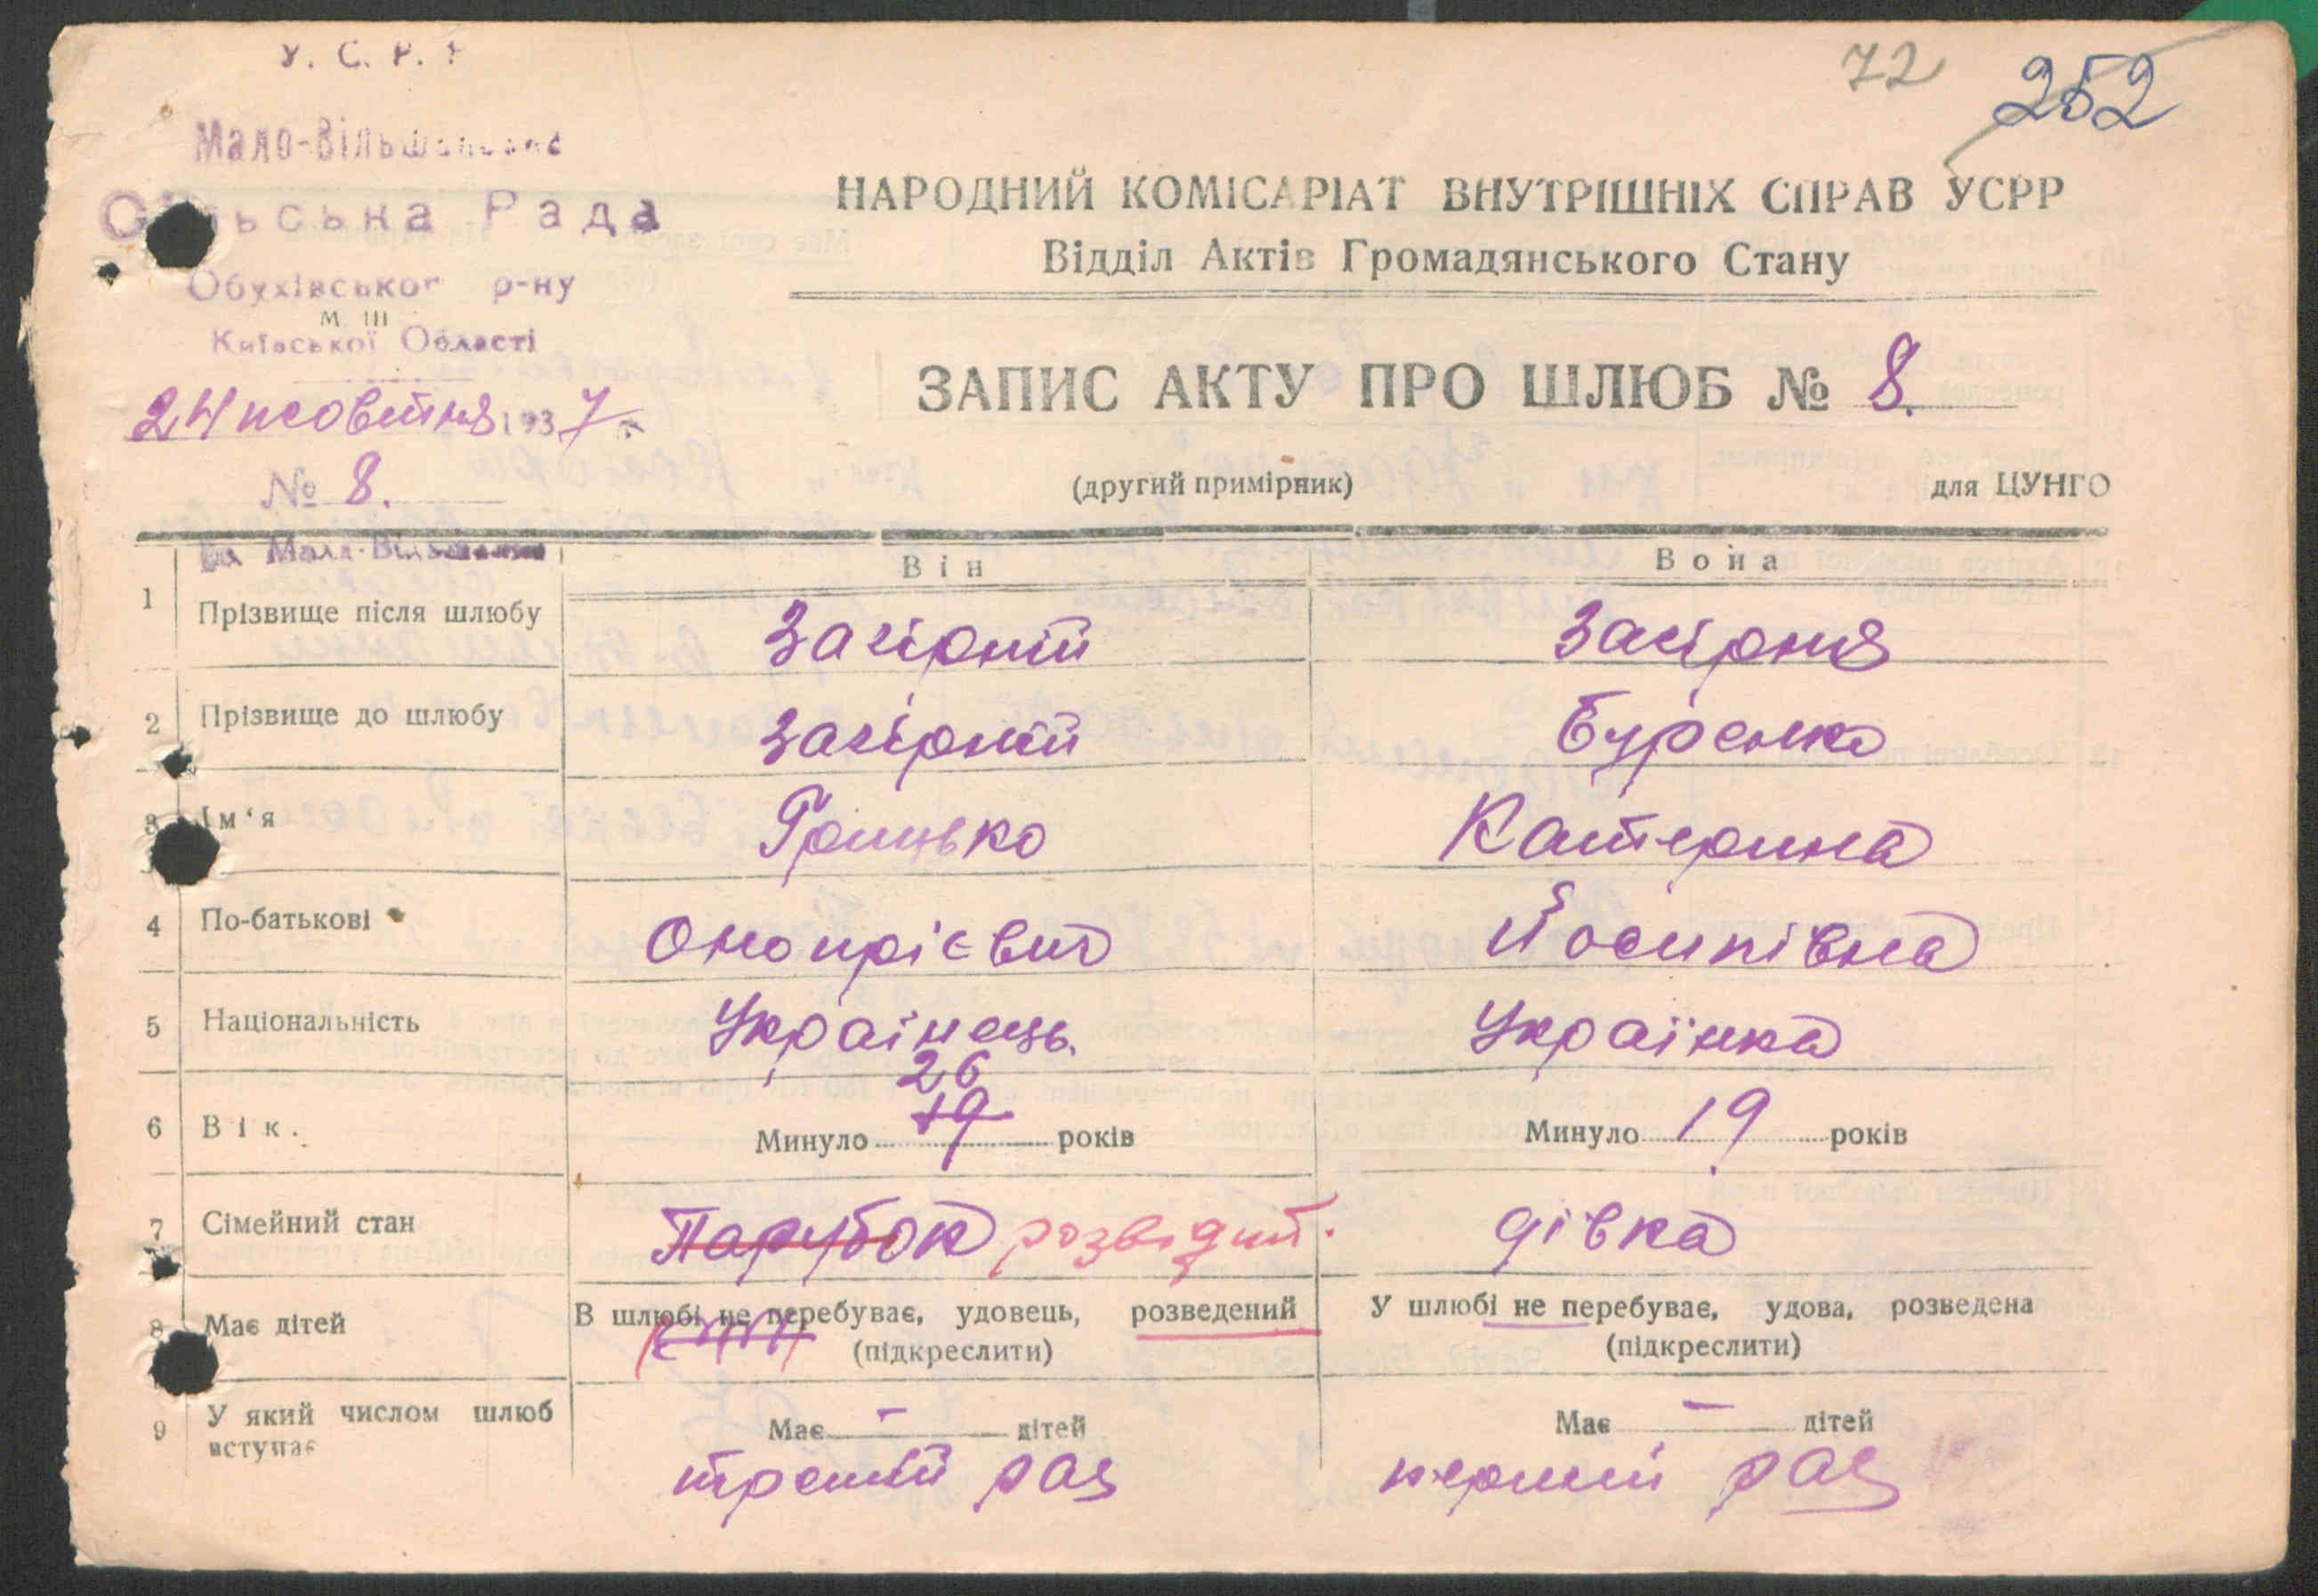 У. С. Р. Р
72 252
Мало-Вільшанська
Сільська Рада
Обухівськог р-ну
М. III
Київської Області
24 жовтня 1937 р.
№ 8.
НАРОДНИЙ КОМІСАРІАТ ВНУТРІШНІХ СПРАВ УСРР
Відділ Актів Громадянського Стану
ЗАПИС АКТУ ПРО ШЛЮБ № 8.
(другий примірник) для ЦУНГО
Мало-Вільшанка
Він Вона
1 Прізвище після шлюбу Загірній Загірня
2 Прізвище до шлюбу Загірній Буренко
3 Ім‘я Грицько Катерина
4 По-батькові Онопрієвич Йосипівна
5 Національність Українець. Українка
26
6 Вік. Минуло 19 років Минуло 19 років
7 Сімейний стан Парубок розведий. дівка
8 Має дітей В шлюбі не перебуває, удовець, розведений У шлюбі не перебуває, удова, розведена
(підкреслити) (підкреслити)
9 У який числом шлюб Має – дітей Має – дітей
вступає
третій раз перший раз